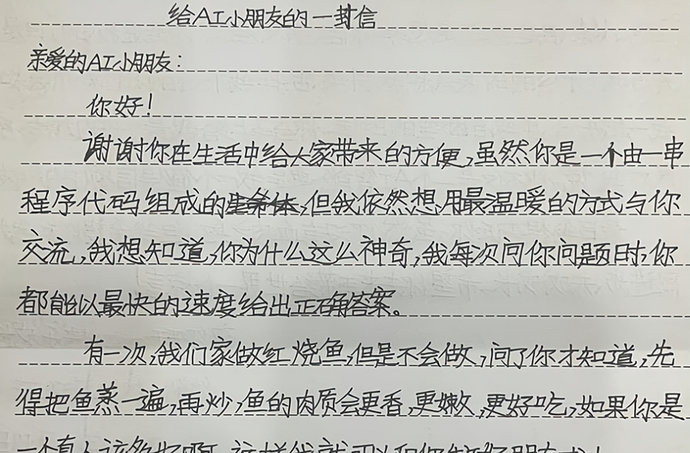 给AI小朋友的一封信
亲爱的AI小朋友：
你好！
谢谢你在生活中给大家带来的方便，虽然你是一个由一串
程序代码组成的生命体，但我依然想用最温暖的方式与你
交流，我想知道，你为什么这么神奇，我每次问你问题时，你
都能以最快的速度给出正确答案。
有一次，我们家做红烧鱼，但是不会做，问了你才知道，先
得把鱼蒸一遍，再炒，鱼的肉质会更香，更嫩，更好吃，如果你是
一个真人该多好啊，这样我就可以和你